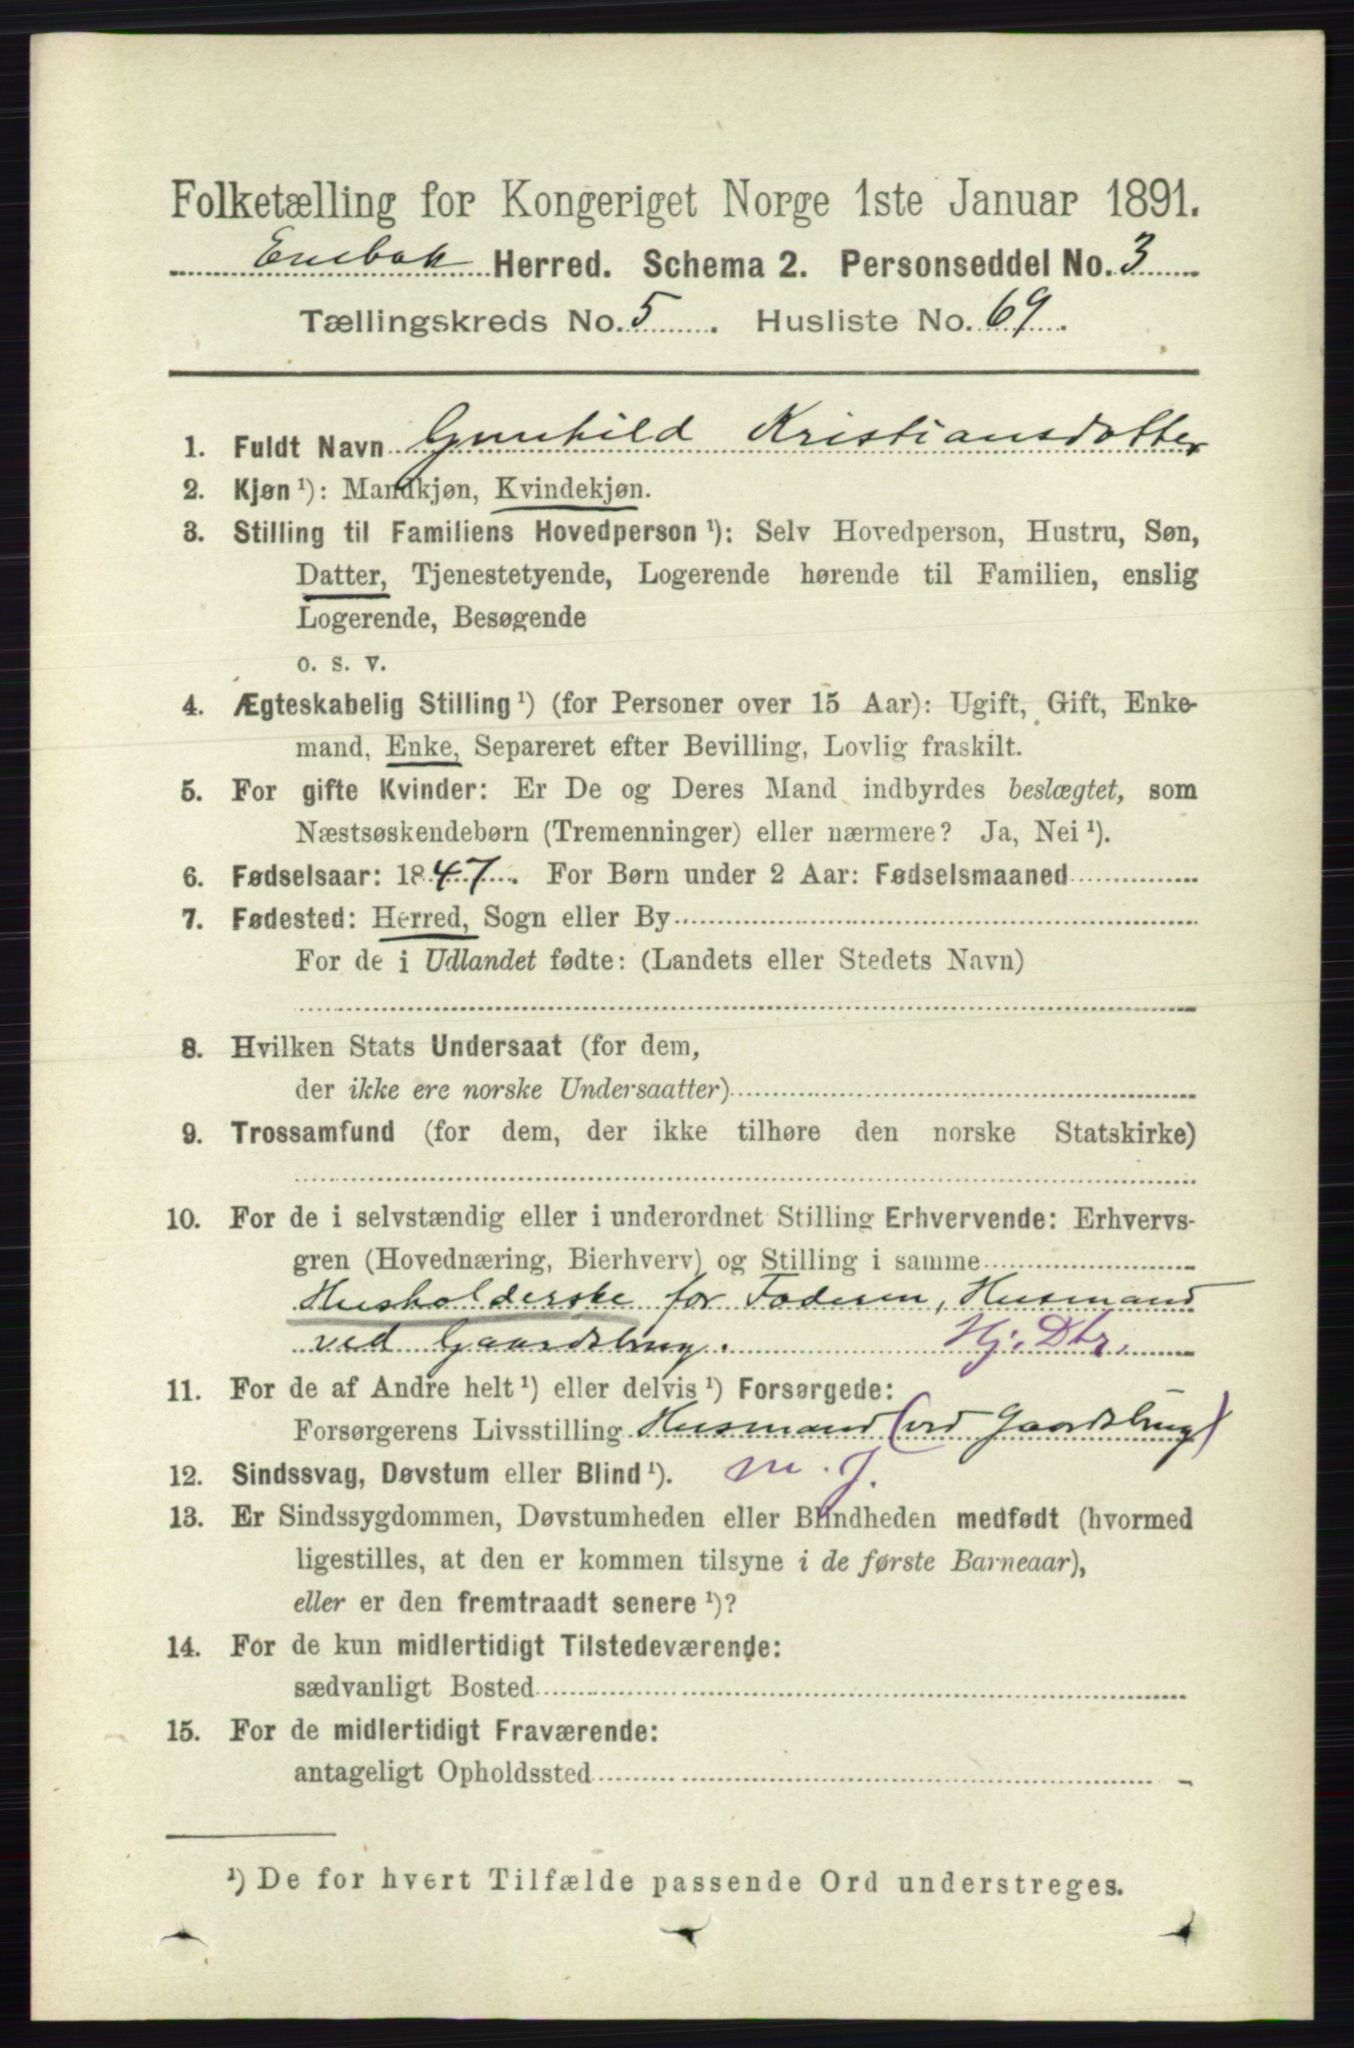 Folketælling for Kongeriget Norge 1ste Januar 1891.
Enebak Herred. Schema 2. Personseddel No. 3
Tællingskreds No. 5. Husliste No. 69.
1. Fuldt Navn Gunhild Kristiansdotter
2. Kjøn ¹): Mandkjøn, Kvindekjøn.
3. Stilling til Familiens Hovedperson ¹): Selv Hovedperson, Hustru, Søn,
Datter, Tjenestetyende, Logerende hørende til Familien, enslig
Logerende, Besøgende
o. s. v.
4. Ægteskabelig Stilling ¹) (for Personer over 15 Aar): Ugift, Gift, Enke-
mand, Enke, Separeret efter Bevilling, Lovlig fraskilt.
5. For gifte Kvinder: Er De og Deres Mand indbyrdes beslægtet, som
Næstsøskendebørn (Tremenninger) eller nærmere? Ja, Nei ¹).
6. Fødselsaar: 1847. For Børn under 2 Aar: Fødselsmaaned
7. Fødested: Herred, Sogn eller By
For de i Udlandet fødte: (Landets eller Stedets Navn)
8. Hvilken Stats Undersaat (for dem,
der ikke ere norske Undersaatter)
9. Trossamfund (for dem, der ikke tilhøre den norske Statskirke)
10. For de i selvstændig eller i underordnet Stilling Erhvervende: Erhvervs-
gren (Hovednæring, Bierhverv) og Stilling i samme
Husholderske for Faderen, Husmand
ved Gaardsbrug. Hj. Dtr.
11. For de af Andre helt ¹) eller delvis ¹) Forsørgede:
Forsørgerens Livsstilling Husmand (ved Gaardsbrug)
12. Sindssvag, Døvstum eller Blind ¹). m. J.
13. Er Sindssygdommen, Døvstumheden eller Blindheden medfødt (hvormed
ligestilles, at den er kommen tilsyne i de første Barneaar),
eller er den fremtraadt senere ¹)?
14. For de kun midlertidigt Tilstedeværende:
sædvanligt Bosted
15. For de midlertidigt Fraværende:
antageligt Opholdssted
¹) De for hvert Tilfælde passende Ord understreges.